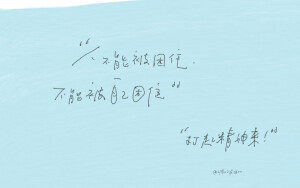 “人不能被困住.
不能被自己困住”
“打起精神来!”